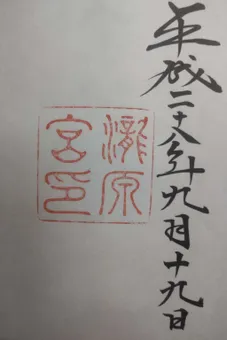 平成二十八年九月十九日
瀧原宮印